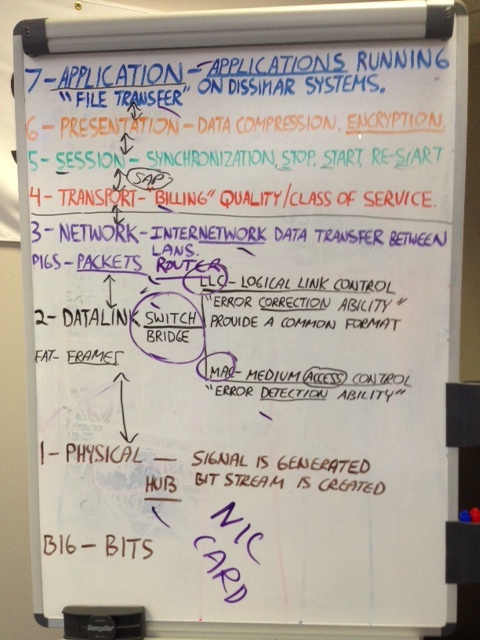 7-APPLICATION-APPLICATIONS RUNNING
"FILE TRANSFER" ON DISSIMAR SYSTEMS.
6-PRESENTATION-DATA COMPRESSION, ENCRYPTION
5-SESSION-SYNCHRONIZATION, STOP, START, RE-START
SAP
4-TRANSPORT-"BILLING" QUALITY/CLASS OF SERVICE.
3-NETWORK-INTERNETWORK DATA TRANSFER BETWEEN
LANS.
PIGS-PACKETS ROUTER
LLC-LOGICAL LINK CONTROL
"ERROR CORRECTION ABILITY"
2-DATALINK SWITCH PROVIDE A COMMON FORMAT
BRIDGE
FAT-FRAMES
MAC-MEDIUM ACCESS CONTROL
"ERROR DETECTION ABILITY"
1-PHYSICAL - SIGNAL IS GENERATED
HUB BIT STREAM IS CREATED
NIC
CARD
BIG-BITS